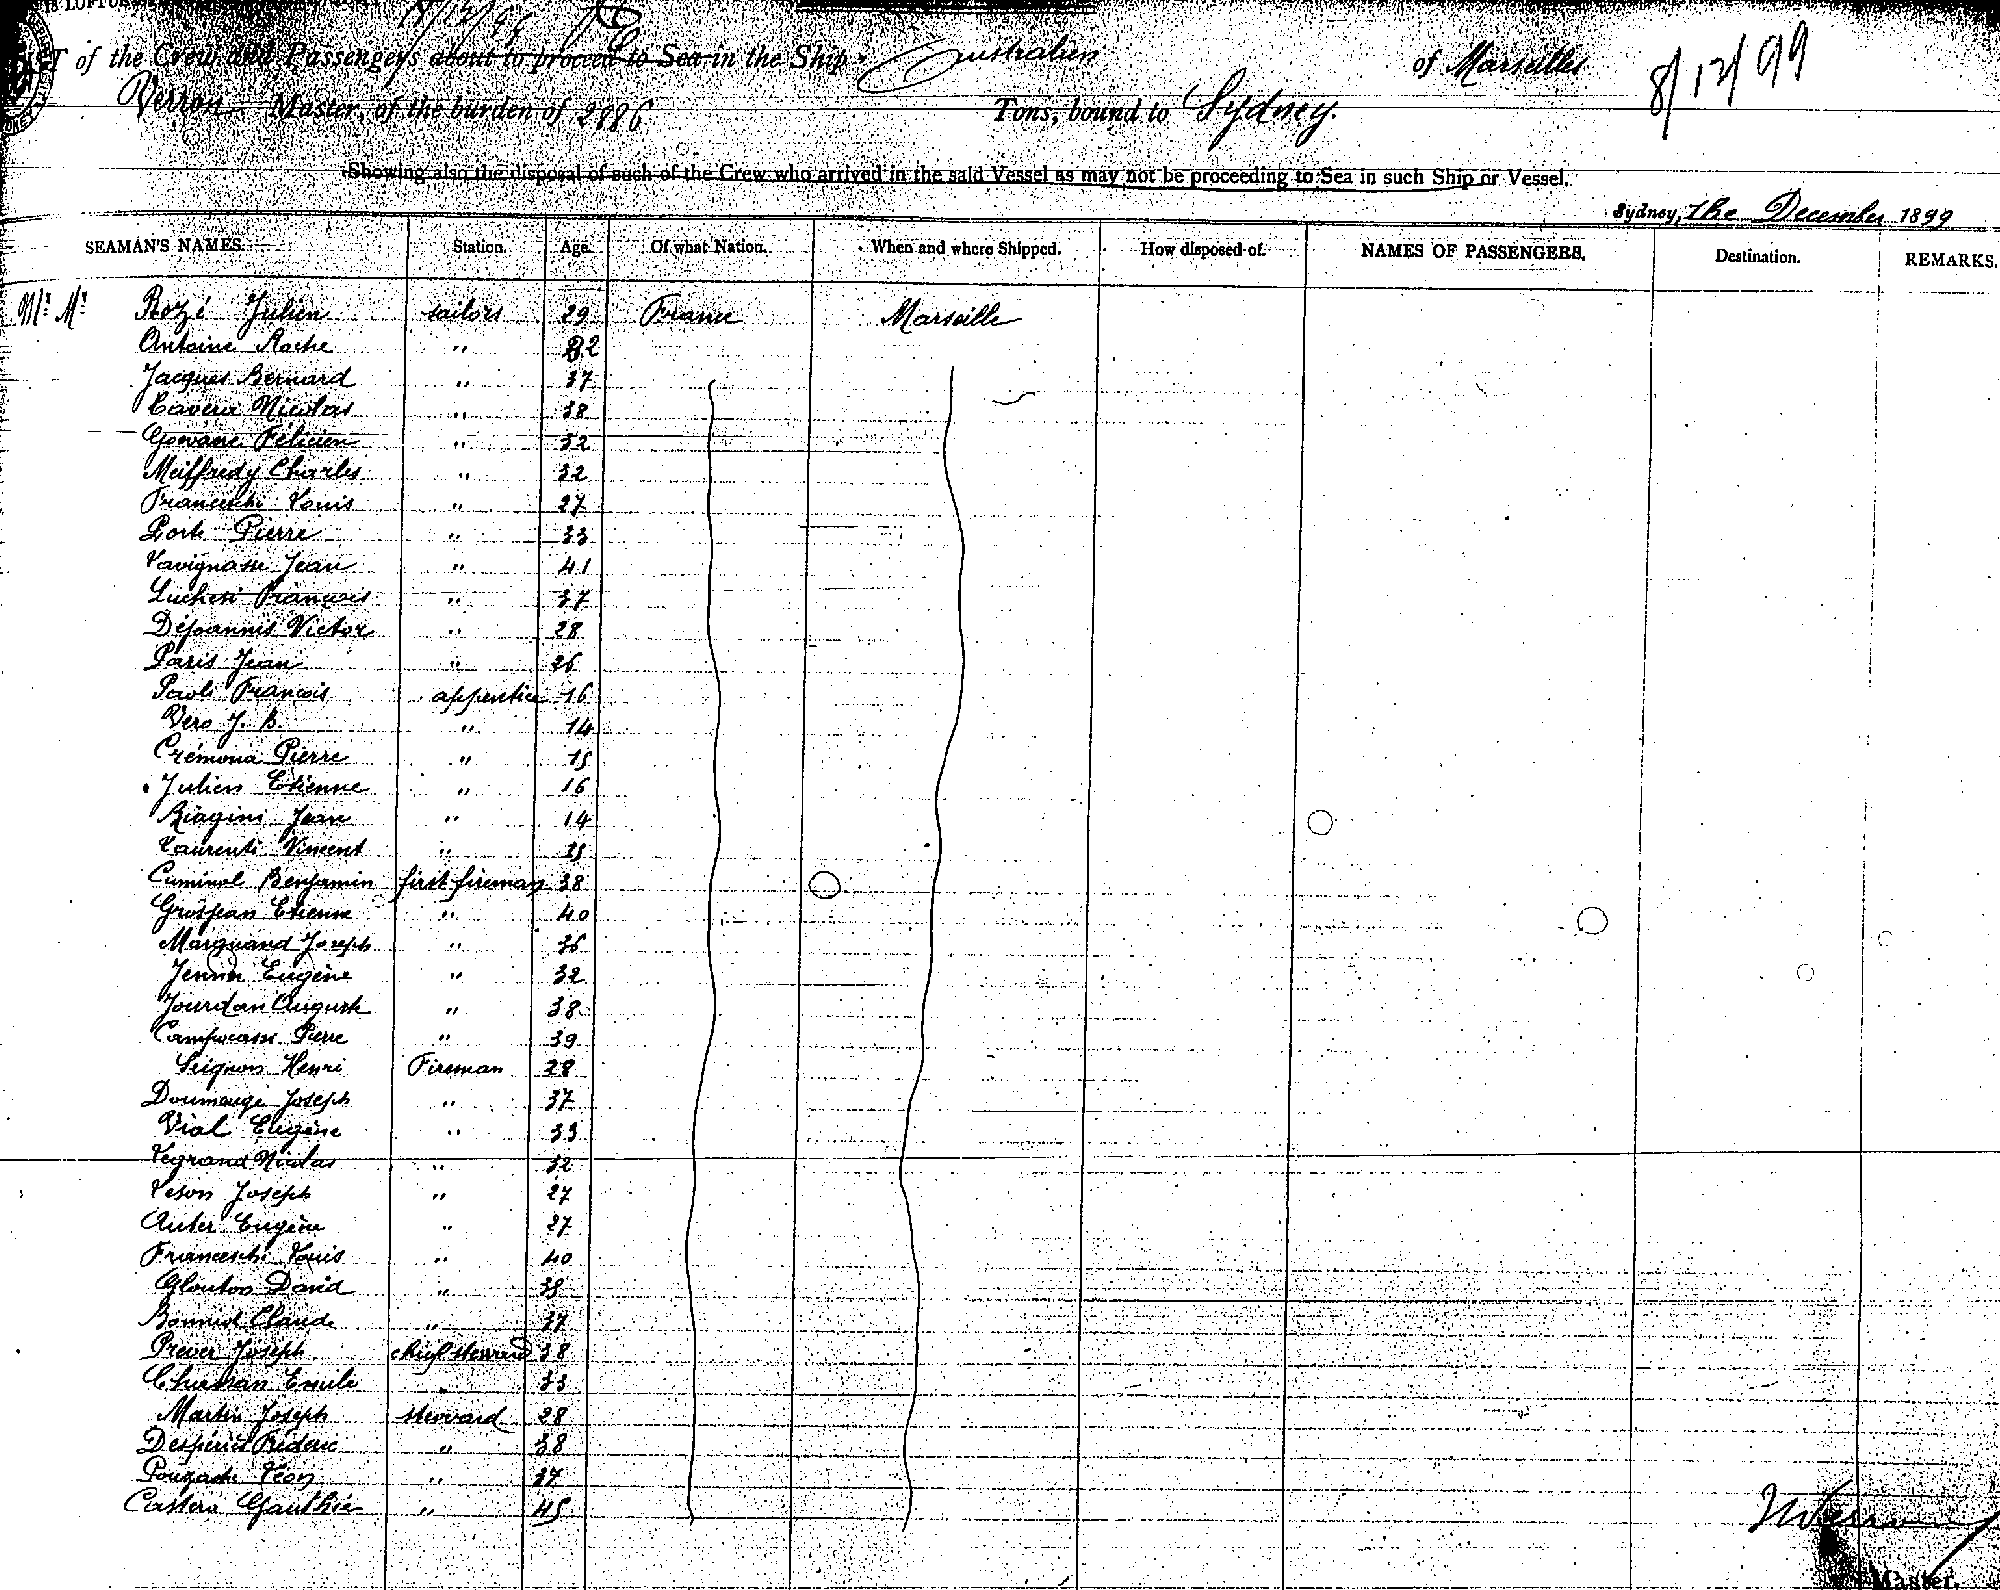 of the Crew and Passengers about to proceed to Sea in the Ship Australien of Marseilles 8/12/99
Verron Master, of the burden of 2886 Tons, bound to Sydney.
Showing also the disposal of such of the Crew who arrived in the said Vessel as may not be proceeding to Sea in such Ship or Vessel.
Sydney, the December 1899
SEAMAN'S NAMES. Station. Age. Of what Nation. When and where Shipped. How disposed of. NAMES OF PASSENGERS. Destination. REMARKS.
Mr. Mr. Rozé Julien sailors 29 France Marseille
Antoine Roche " 32
Jacques Bernard " 37
Nicolas " 38
Félicien " 32
Meiffredy Charles " 32
Franceschi Louis " 27
Porte Pierre " 33
Lavignasse Jean " 41
Luchesi François " 37
Déjoannis Victor " 28
Paris Jean " 26
Paoli François apprentice 16
Vero J. B. " 14
Crémona Pierre " 15
Julien Etienne " 16
Biagini Jean " 14
Laurenti Vincent "
Cuminal Benjamin first fireman 38
Grosjean Etienne " 40
Marquand Joseph " 36
Eugène " 32
Jourdan Auguste " 38
Campocasso Pierre " 39
Seignon Henri Fireman 28
Doumauge Joseph " 37
Vial Eugène " 33
Legrand Nicolas " 32
Veson Joseph " 27
Auter Eugène " 27
Franceschi Louis " 40
Glouton David "
Claude " 37
Prever Joseph chief steward 38
Emile " 33
Martin Joseph steward 28
Fréderic " 38
Léon " 37
Castera Gauthier " 45
Master.